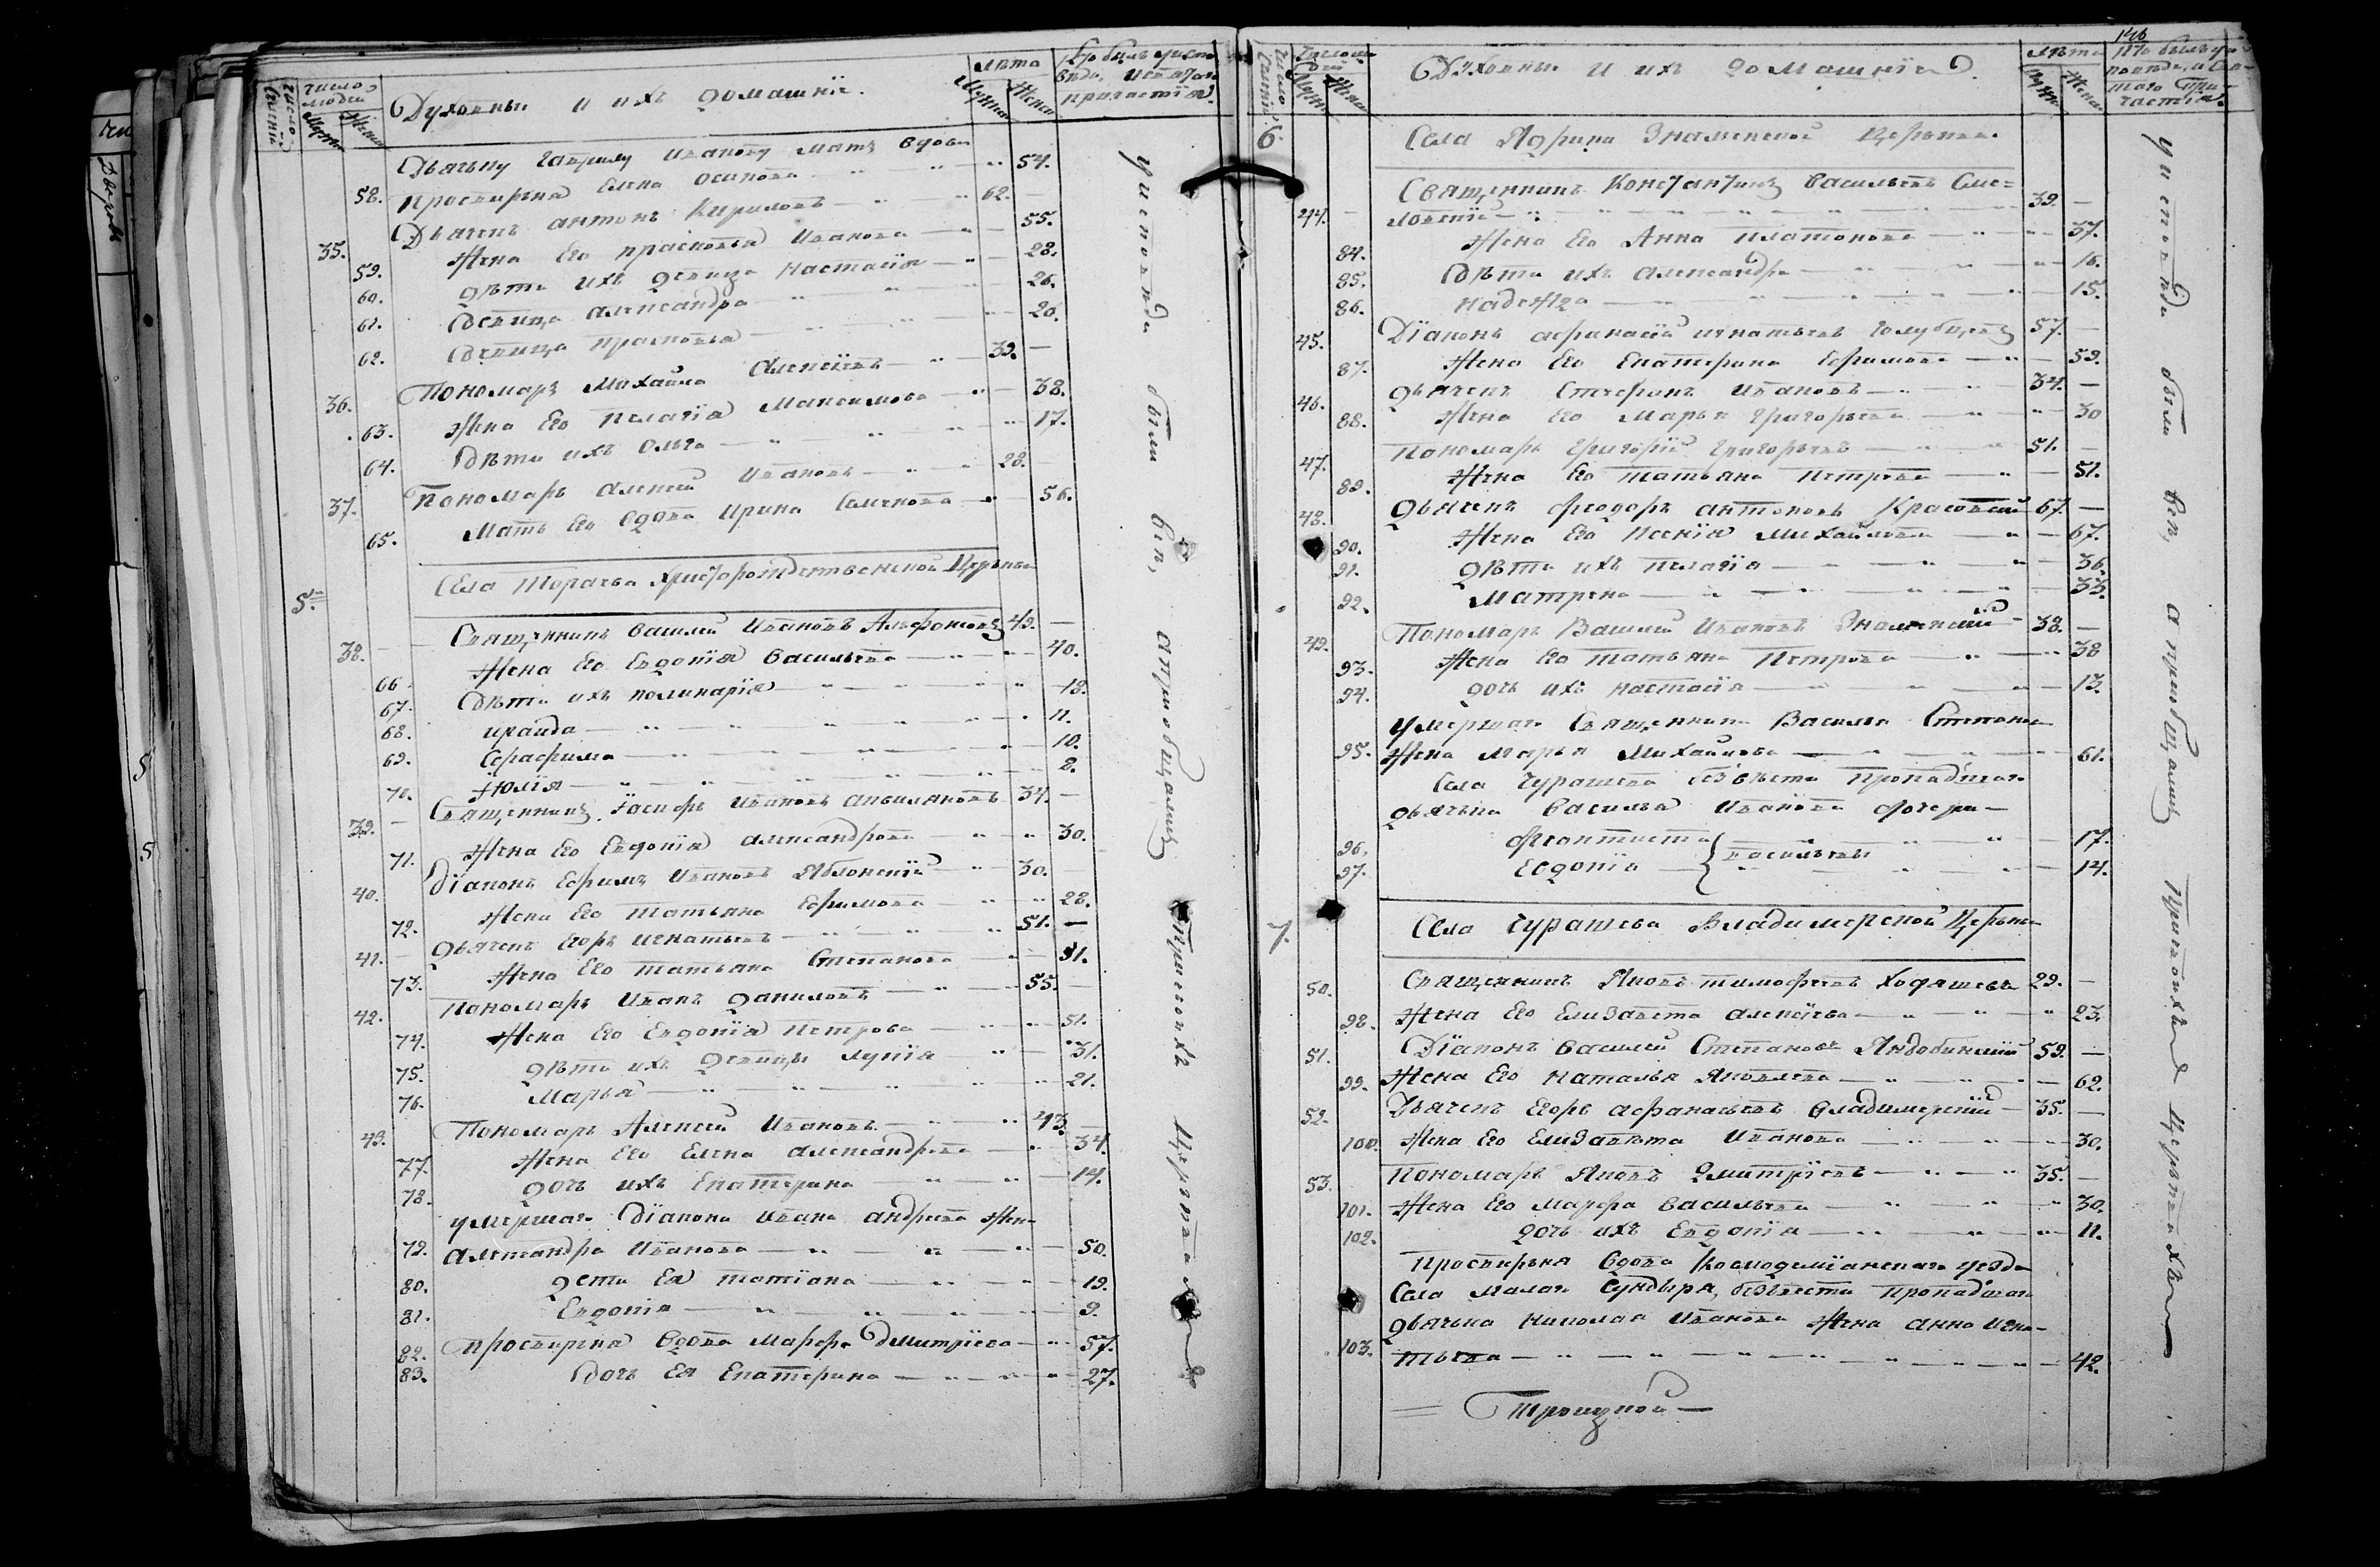 число семей
число людей
Мужи
Жены
Духовныи и ихъ домашніе.
лѣта
Мужи
Жены
кто былъ у испо-
вѣди, и святаго
причастія.
Дьячьку Гаврилу Иванову мать вдова
58. Просвирьня Елена Осипова — 54.
35. Дьячекъ Антонъ Кириловъ — 62. —
59. Жена его Прасковья Иванова — 55.
60. дѣти ихъ девица Настасія — 28.
61. Девица Александра — 26.
62. Девица Прасковья — 20.
36. Пономарь Михайла Алексѣевъ — 39. —
63. Жена его Пелагія Максимова — 38.
64. Дѣти ихъ Ольга — 17.
37. Пономарь Алексей Ивановъ — 28. —
65. Мать его вдова Ирина Семенова — 56.
5. Села Тораева Христорождественской Церкви
38. Священникъ Василій Ивановъ 49. —
66. Жена его Евдокія Васильева — 40.
67. Дѣти ихъ Полинарія — 13.
68. Ираида — 11.
69. Серафима — 10.
70. Юлія — 2.
39. Священникъ Іосифъ Ивановъ 34. —
71. Жена его Евдокія Александрова — 30.
40. Діаконъ Ефимъ Ивановъ Яблонскій — 30.
72. Жена его Татьяна Ефимова — 28.
41. Дьячекъ Егоръ Игнатьевъ — 51. —
73. Жена его Татьяна Степанова — 51.
42. Пономарь Иванъ Даниловъ — 55. —
74. Жена его Евдокія Петрова — 51.
75. дѣти ихъ девицы Лукія — 31.
76. Марья — 21.
43. Пономарь Алексей Ивановъ — 43. —
77. Жена его Елена Александрова — 34.
78. дочь ихъ Екатерина — 14.
умершаго Діакона Ивана Андреева жена
79. Александра Иванова — 50.
80. дети Ея Татіана — 19.
81. Евдокія — 9.
82. Просвирня вдова Марфа Дмитріева — 57.
83. Дочь Ея Екатерина — 27.
у исповѣди были все, а приобщались при своихъ Церквахъ
146
число семей
Число людей
Мужи
Жены
Духовныи и ихъ домашніе
лѣта
Мужи
Жены
Кто былъ у ис-
повѣди, и Свя-
таго При-
частія.
6. Села Ядрина Знаменской Церкви.
Священникъ Константинъ Васильевъ Смѣ=
44. ловскій — 39. —
84. Жена его Анна Платонова — 37.
85. Дѣти ихъ Александра — 16.
86. Надежда — 15.
45. Діаконъ Афанасій Игнатьевъ Голубцевъ 57. —
87. Жена его Екатерина Ефимова — 59.
46. Дьячекъ Стефанъ Ивановъ — 34. —
88. Жена его Марья Григорьева — 30
47. Пономарь Григорій Григорьевъ — 51. —
89. Жена его Татьяна Петрова — 51.
48. Дьячекъ Феодоръ Антоновъ Красовскій 67. —
90. Жена его Ксенія Михайлова — 67.
91. Дѣти ихъ Пелагія — 36.
92. Матрена — 33.
49. Пономарь Василій Ивановъ Знаменскій — 38. —
93. Жена его Татьяна Петрова — 38
94. дочь ихъ Настасія — 13.
умершаго Священника Василья Степанова
95. Жена Марья Михайлова — 61.
Села Чурашева безъ вѣсти пропадшаго
дьячька Василья Иванова дочери —
96. Феоктиста 17.
васильевы
97. Евдокія — 14.
7. Села Чурашева Владимерской Церкви
50. Священникъ Яковъ Тимофеевъ Ходяшевъ 29. —
98. Жена его Елизавета Алексеева — 23.
51. Діаконъ Василій Степановъ Яндобинскій 59. —
99. Жена его Наталья Яковлева — 62.
52. Дьячекъ Егоръ Афанасьевъ Владимерскій — 35. —
100. Жена его Елизавѣта Иванова — 30.
53. Пономарь Яковъ Дмитріевъ — 35. —
101. Жена его Марфа Васильева — 30.
102. дочь ихъ Евдокія — 11.
Просвирьня вдова Космодемианскаго уезда
Села Малаго Сундыря, безвѣсти пропадшаго
дьячька Николая Иванова жена Анна Игна-
103. тьева — 42.
= Троицкой —
у исповѣди были все, а приобщались при своихъ Церквахъ